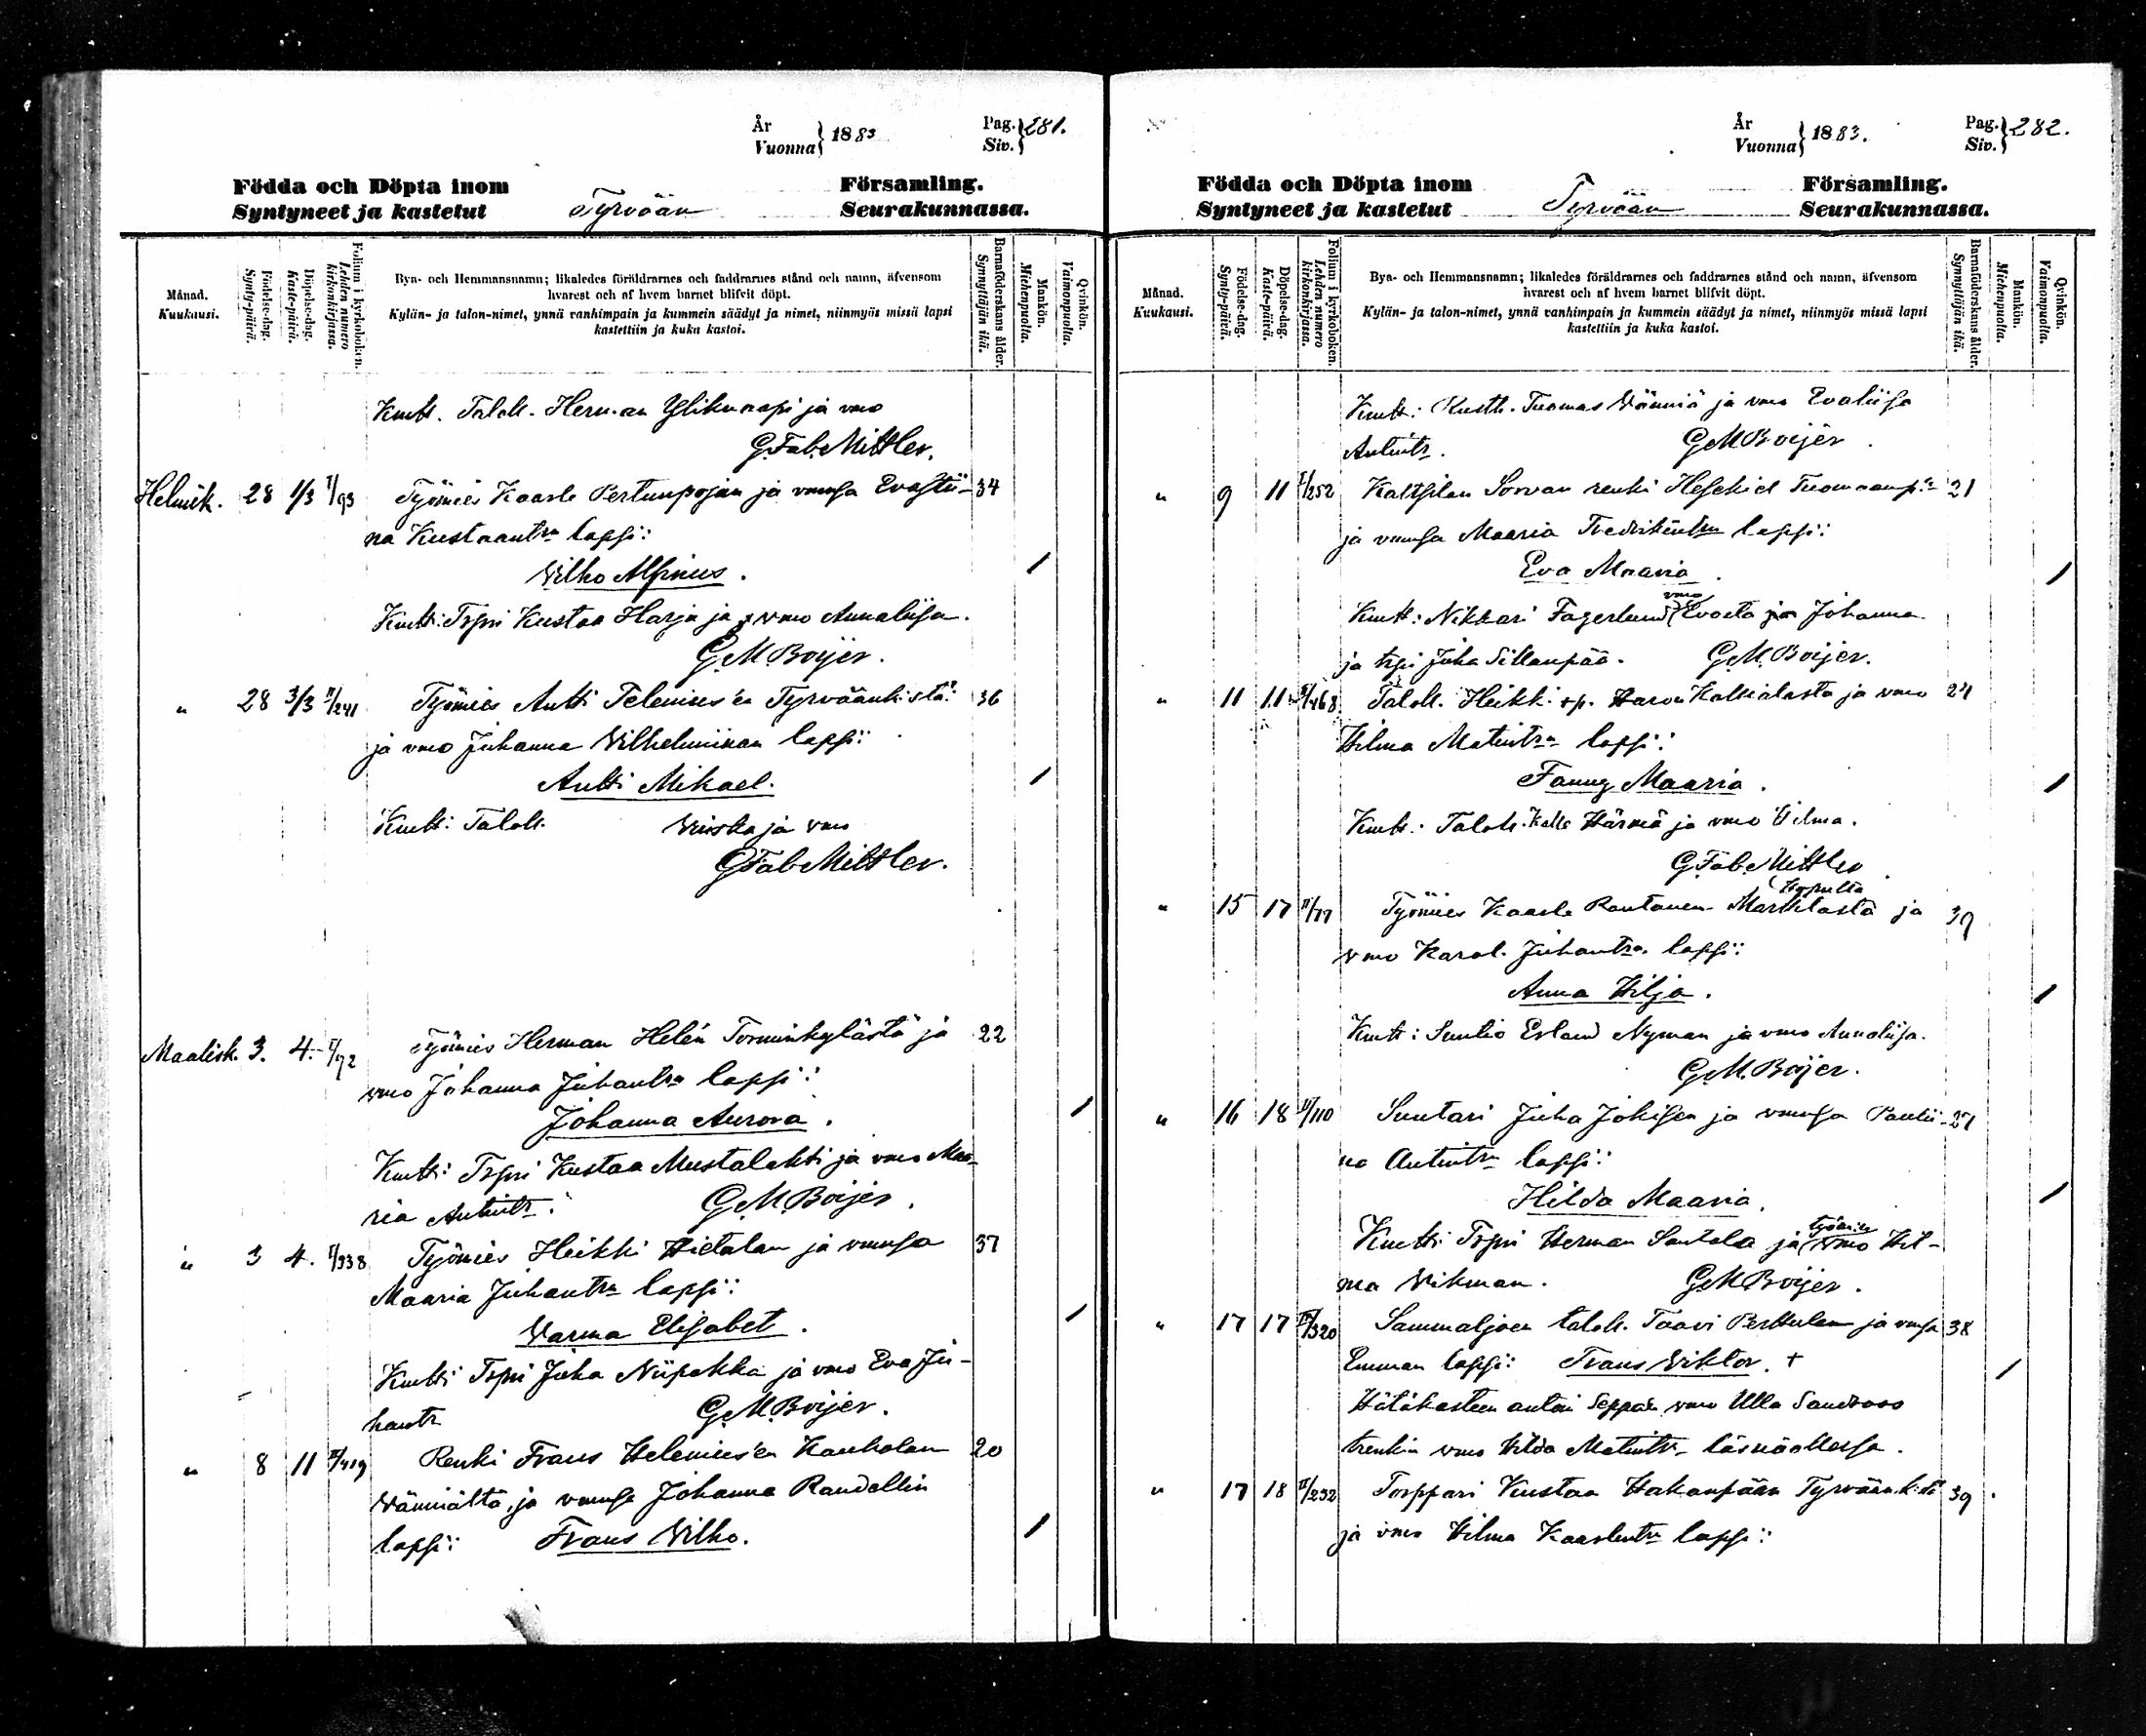 År
Vuonna } 1883
Pag.
Siv. } 281.
Födda och Döpta inom
Syntyneet ja kastetut
Tyrvään
Församling.
Seurakunnassa.
Månad.
Kuukausi.
Födelse-dag.
Synty-päivä.
Döpelse-dag.
Kaste-päivä.
Folium i kyrkoboken.
Lehden numero kirkonkirjassa.
Bya- och Hemmansnamn; likaledes föräldrarnes och faddrarnes stånd och namn, äfvensom
hvarest och af hvem barnet blifvit döpt.
Kylän- ja talon-nimet, ynnä vanhimpain ja kummein säädyt ja nimet, niinmyös missä lapsi
kastettiin ja kuka kastoi.
Barnaföderskans ålder.
Synnyttäjän ikä.
Mankön.
Miehenpuolta.
Qvinkön.
Vaimonpuolta.
Kmtt. Talok. Herman Yliknaapi ja vmo
G.Fab.Mittler.
Helmik. 28 1/3 I/93 Työmies Kaarle Pertunpojan ja vmnsa Evastii- 34
na Kustaantr lapsi:
Vilho Alfinus.
Kmtt: Trpri Kustaa Harju ja vmo Annaliisa.
G.M.Boijer.
" 28 3/3 II/241 Työmies Antti Telenius'en Tyrväänk:stä 36
ja vmo Juhanna Vilhelmiinan lapsi:
Antti Mikael.
Kmtt: Talok. ja vmo
G.Fab.Mittler.
Maalisk. 3. 4. I/92 Työmies Herman Helén Torminkylästä ja 22
vmo Johanna Juhantr lapsi:
Johanna Aurora.
Kmtt: Trpri Kustaa Mustalahti ja vmo Maa-
ria Antintr. G.M.Boijer.
" 3 4. I/338 Työmies Heikki Hietalan ja vmnsa 37
Maaria Juhantr lapsi:
Varma Elisabet.
Kmtt: Trpri Juha Niipekka ja vmo Eva Ju-
hantr G.M.Boijer.
" 8 11 II/419 Renki Frans Helenius'en Kaukolan 20
Vänniältä, ja vmnsa Johanna Randellin
lapsi: Frans Vilho.
År
Vuonna } 1883.
Pag.
Siv. } 282.
Födda och Döpta inom
Syntyneet ja kastetut
Tyrvään
Församling.
Seurakunnassa.
Månad.
Kuukausi.
Födelse-dag.
Synty-päivä.
Döpelse-dag.
Kaste-päivä.
Folium i kyrkoboken.
Lehden numero kirkonkirjassa.
Bya- och Hemmansnamn; likaledes föräldrarnes och faddrarnes stånd och namn, äfvensom
hvarest och af hvem barnet blifvit döpt.
Kylän- ja talon-nimet, ynnä vanhimpain ja kummein säädyt ja nimet, niinmyös missä lapsi
kastettiin ja kuka kastoi.
Barnaföderskans ålder.
Synnyttäjän ikä.
Mankön.
Miehenpuolta.
Qvinkön.
Vaimonpuolta.
Kmtt: Rusth. Tuomas Vänniä ja vmo Evaliisa
Antintr. G.M.Boijer.
" 9 11 I/252 Kaltsilan Sorvan renki Hesekiel Tuomaanp:n 21
ja vmnsa Maaria Fredrikintr lapsi:
Eva Maaria.
Kmtt: Nikkari Fagerlund vmo Evaeta ja Johanna
ja trpi Juha Sillanpää. G.M.Boijer.
" 11 11 468 Talok. Heikki Kallialasta ja vmo 24
Hilma Matintr lapsi:
Fanny Maaria.
Kmtt: Talok. Kalle Härmä ja vmo Vilma.
G.Fab.Mittler
" 15 17 II/77 Työmies Kaarle Rantanen Marttilasta ja 39
vmo Karol. Juhantr. lapsi:
Anna Hilja.
Kmtt: Suntio Erland Nyman ja vmo Annaliisa.
G.M.Boijer.
" 16 18 II/110 Suutari Juha Johisen ja vmnsa Paulii- 27
na Antintr lapsi:
Hilda Maaria.
Kmtt: Trpri Herman Santala ja työmies vmo Hil-
ma Vikman. G.M.Boijer.
" 17 17 II/320 Sammaljoen talok. Taavi Perttulan ja vmnsa 38
Emman lapsi: Frans Viktor. +
Hätäkasteen antoi Sepän vmo Ulla
trenkin vmo Hilda Matintr läsnäollessa.
" 17 18 II/232 Torppari Kustaa Hakanpään Tyrväänk:stä 39
ja vmo Hilma Kaarlentr lapsi: